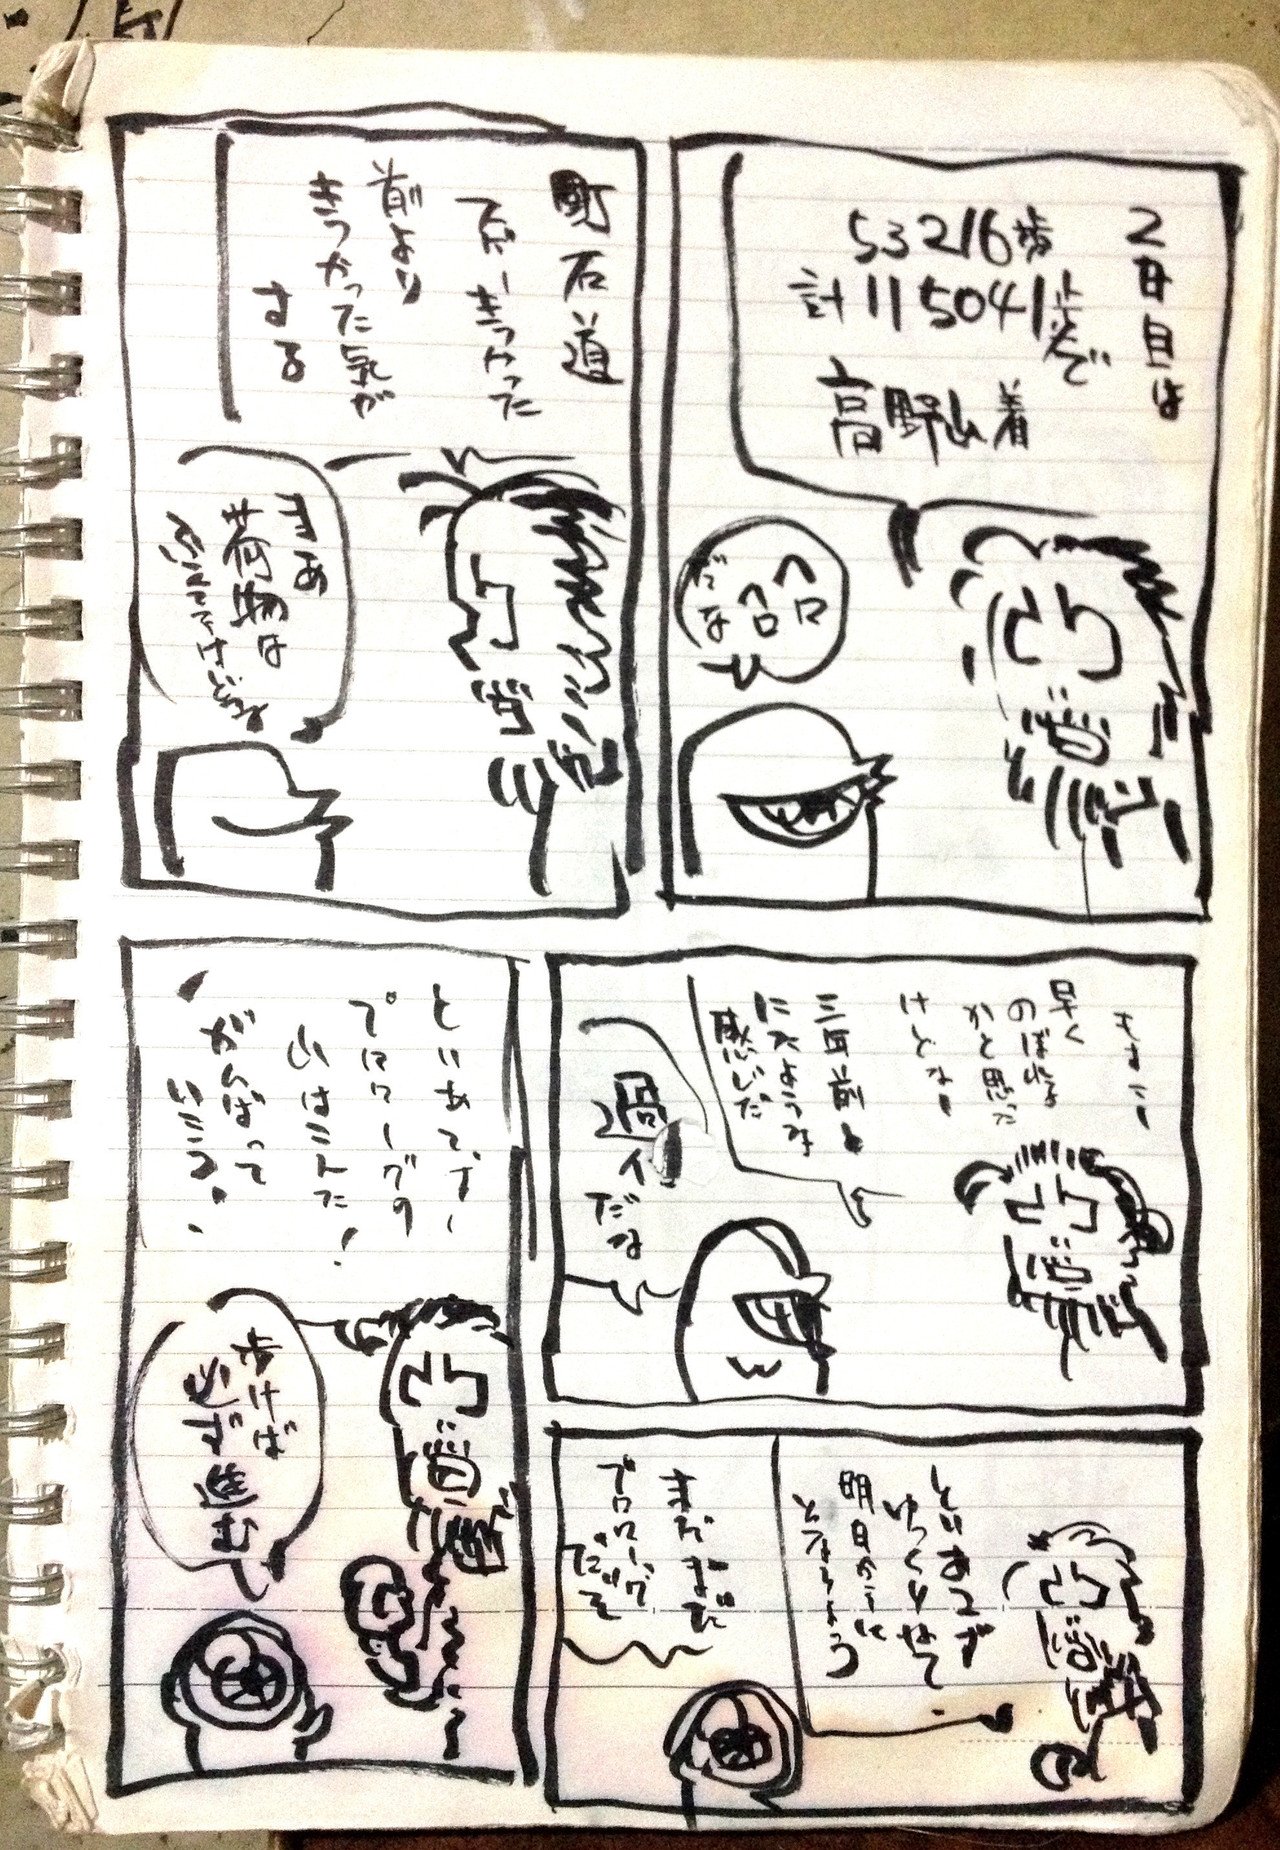 2日目は
53216歩
計115041歩で
高野山着
ヘロ
ヘロ
だな
町石道
でがーきつかった
前より
きつかった気が
する
まあ
荷物は
早く
のぼれる
かと思った
けどなー
三年前と
にたような
感じだ
過
だな
とりあえず
ゆっくりねて
明日から
まだまだ
プロローグ
だぞ
とりあえずー
プロローグの
山はこえた!
がんばって
いこう!
歩けば
必ず進む